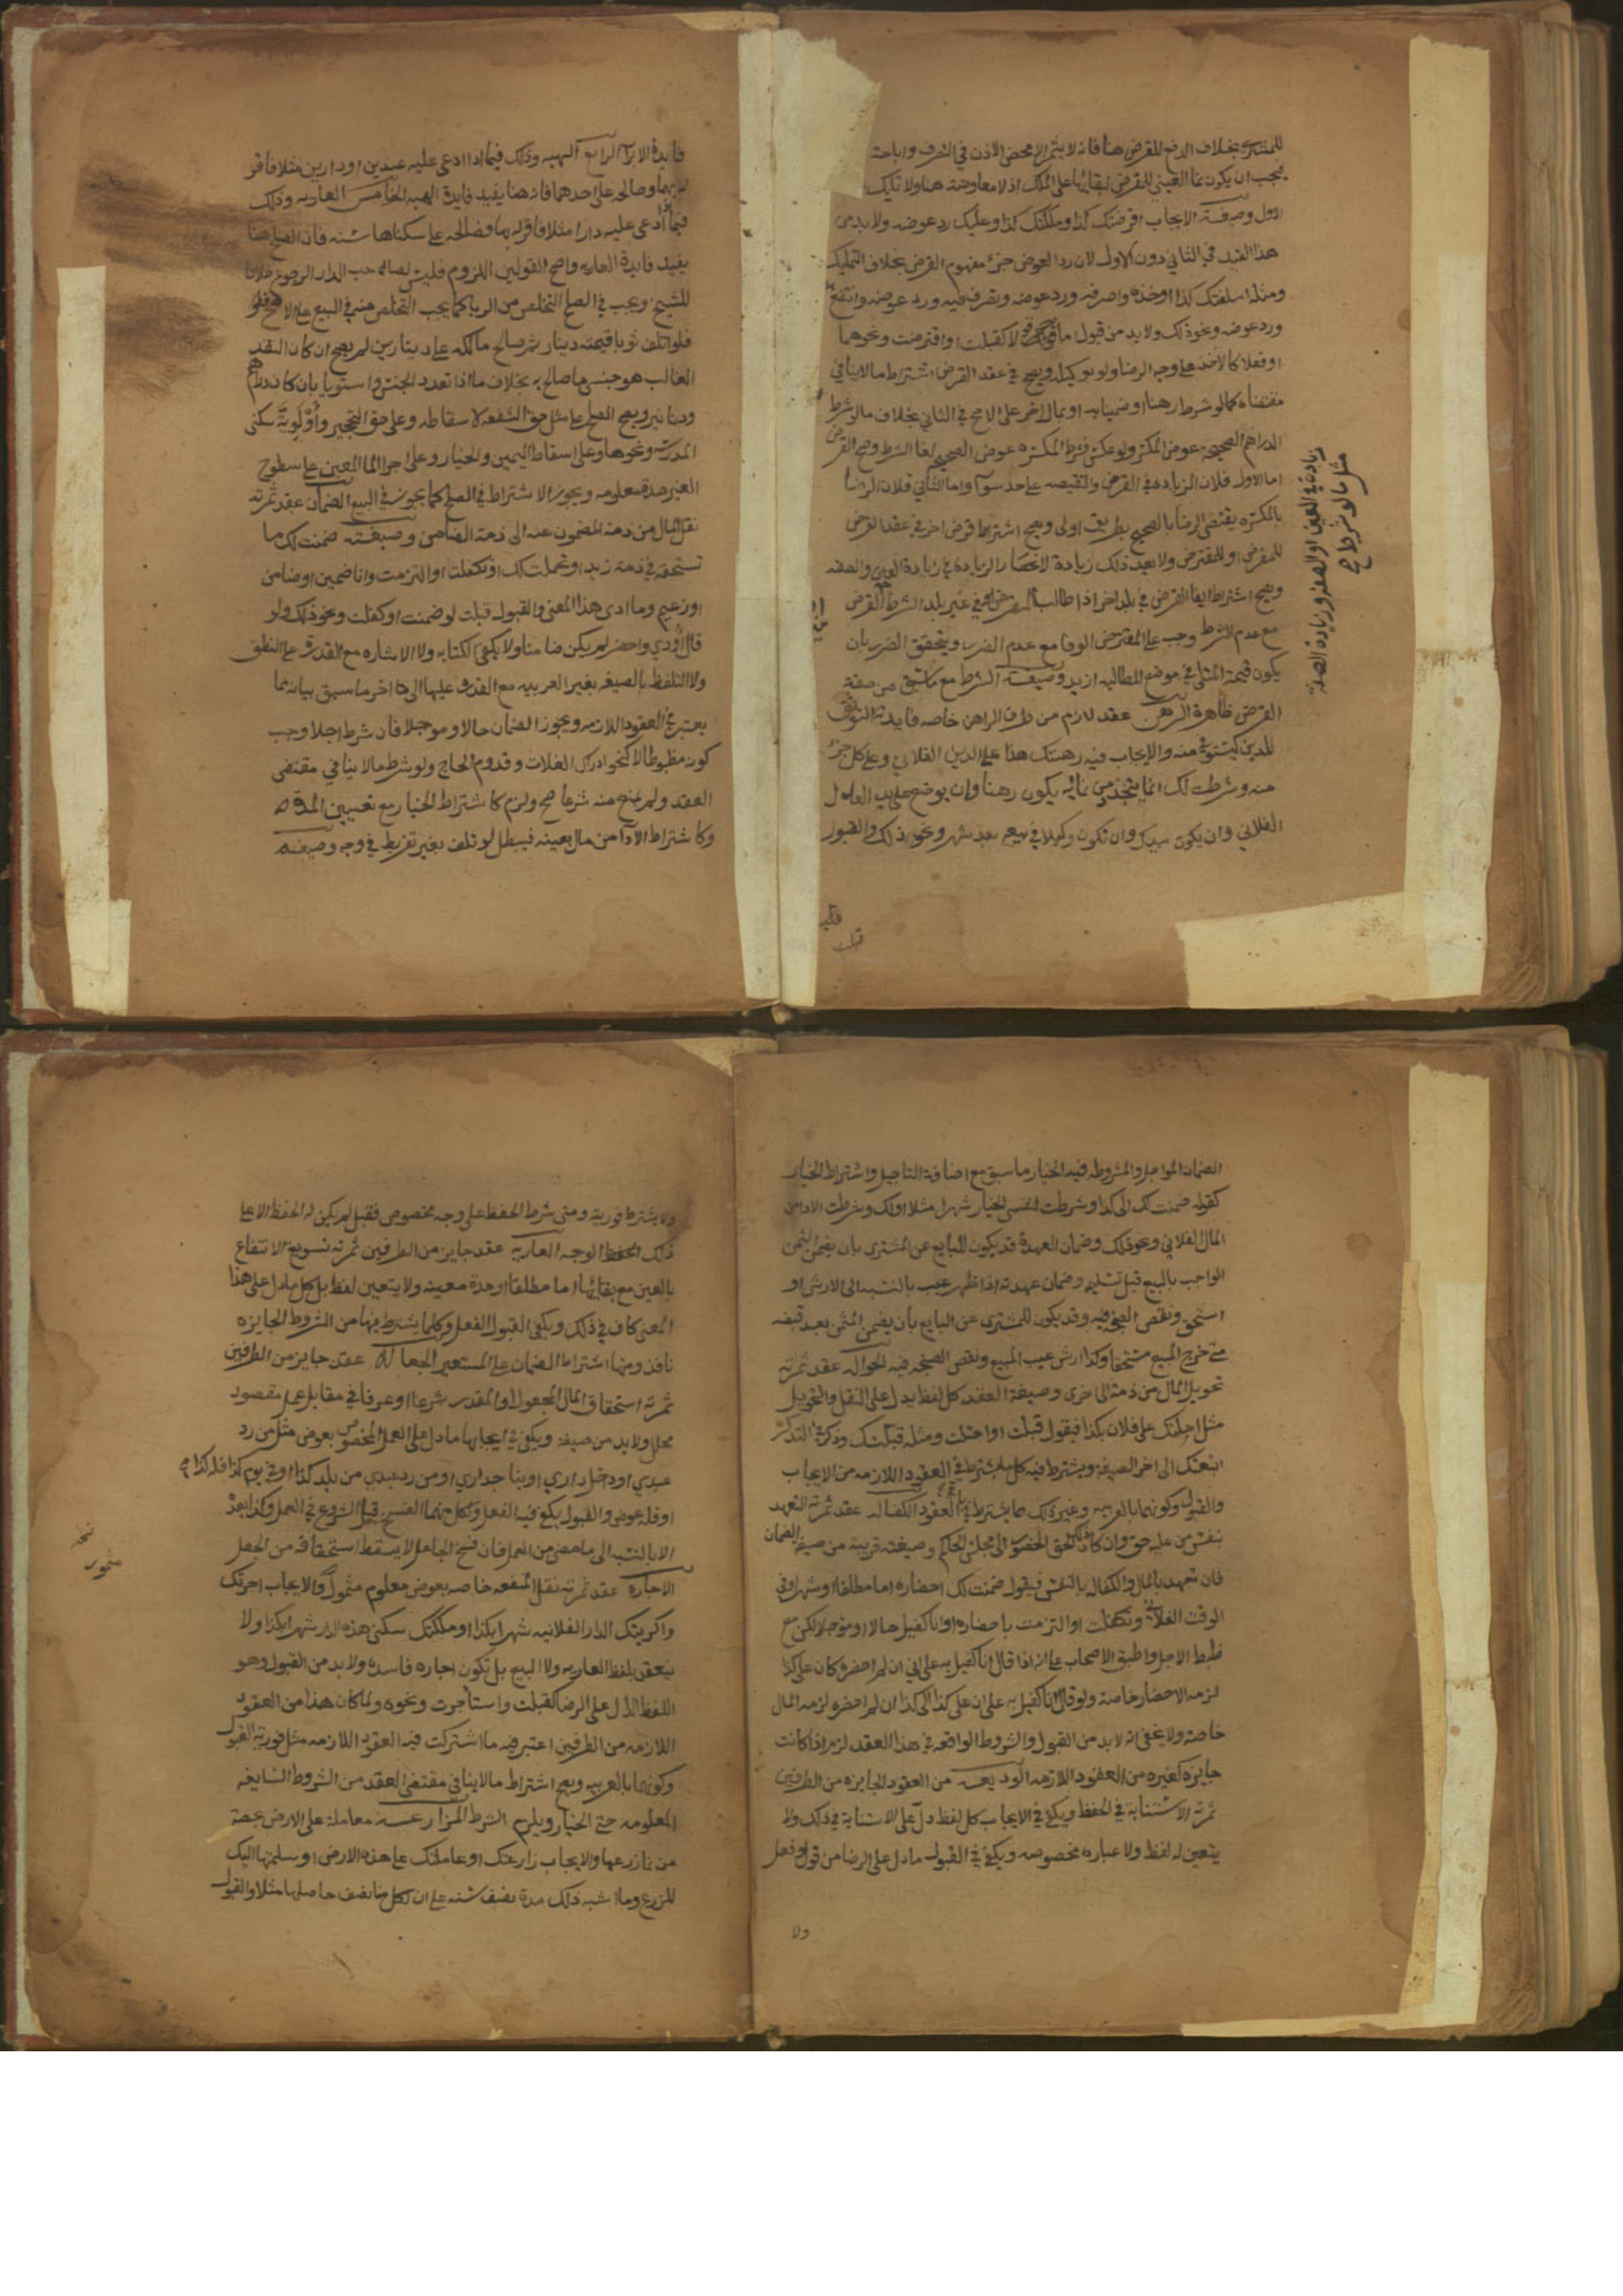 للمشتري بخلاف الدفع للمقرض هنا فانه لا يثمر الا محض الاذن في التصرف واباحته
فيجب ان يكون نما العين للمقرض لبقائها على الملك اذ لا معاوضة هنا ولا تمليك
الاول وصيغته الايجاب اقرضتك كذا وملكتك كذا وعليك رد عوضه ولا بد من
هذا القيد في الثاني دون الاول لان رد العوض جزء مفهوم القرض بخلاف التمليك
ومثله اسلفتك كذا او خذه واصرفه ورد عوضه وتصرف فيه ورد عوضه وانتفع به
ورد عوضه ونحو ذلك ولا بد من قبول اما قولي كقبلت او اقترضت ونحوهما
او فعلا كالاخذ على وجه الرضا ولو بوكيله ويصح في عقد القرض اشتراط ما لا ينافي
مقتضاه كما لو شرط رهنا او ضمينا به او بمال اخر على الاصح في الثاني بخلاف ما لو شرط
الدراهم الصحيحة عوض المكسرة ولو عكس فشرط المكسرة عوض الصحيح لغا الشرط وصح القرض
اما الاول فلان الزيادة في القرض والنقيصه على حد سوآ واما الثاني فلان الرضا
بالمكسرة يقتضي الرضا بالصحيح بطريق اولى ويصح اشتراط قرض اخر في عقد القرض
للمقرض او للمقترض ولا يعد ذلك زيادة لانحصار الزيادة في زيادة العين والصفه
ويصح اشتراط ايفا القرض في بلد اخر اذا طالب المقرض في غير بلد الشرط او القرض
مع عدم الشرط وجب على المقترض الوفا مع عدم الضرر ويتحقق الضرر بان
يكون قيمة المثلي في موضع المطالبه ازيد وصيغة الشرط مع ما سبق من صفة
القرض ظاهرة الرهن عقد لازم من طرف الراهن خاصه فايدته التوثق
للدين ليستوفى منه والايجاب فيه رهنتك هذا على الدين الفلاني وعلى كل جزء
منه وشرطت لك ان ما يتجدد من نمائه يكون رهنا وان يوضع على يد العدل
الفلاني وان يكون بيدك وان تكون وكيلا في بيعه بعد شهر ونحو ذلك والقبول
زيادة في العين او الصفة وزيادة الصفة
مثل ما لو شرط صح
قبلت
فايدة الابرآ الرابع الهبه وذلك فيما اذا ادعى عليه عبدين او دارين مثلا فاقر
له بهما وصالحه على احدهما فانه هنا يفيد فايدة الهبه الخامس العاريه وذلك
فيما اذا ادعى عليه دارا مثلا فاقر له بها فصالحه على سكناها سنه فان الصلح هنا
يفيد فايدة العاريه واصح القولين اللزوم فليس لصاحب الدار الرجوع خلافا
للشيخ ويجب في الصلح التخلص من الربا كما يجب التخلص منه في البيع على الاصح
فلو اتلف ثوبا قيمته دينار ثم صالح مالكه على دينارين لم يصح ان كان النقد
الغالب هو جنس ما صالح به بخلاف ما اذا تعدد الجنس واستويا بان كان دراهم
ودنانير ويصح الصلح على مثل حق الشفعه لاسقاطه وعلى حق التحجير واولوية سكنى
المدرسه ونحوها وعلى اسقاط اليمين والخيار وعلى اجرا الما المعين على سطوح
الغير مدة معلومه ويجوز الاشتراط في الصلح كما يجوز في البيع الضمان عقد ثمرته
نقل المال من ذمة المضمون عنه الى ذمة الضامن وصيغته ضمنت لك ما
تستحقه في ذمة زيد او تحملت لك او تكفلت او التزمت وانا ضمين او ضامن
او زعيم وما ادى هذا المعنى والقبول قبلت لو ضمنت او كفلت ونحو ذلك ولو
قال اؤدي واحضر لم يكن ضامنا ولا يكفي الكتابه ولا الاشاره مع القدرة على النطق
ولا التلفظ بالصيغه بغير العربيه مع القدرة عليها الى اخر ما سبق بيانه مما
يعتبر في العقود اللازمه ويجوز الضمان حالا وموجلا فان شرط اجلا وجب
كونه مضبوطا لا كنحو ادراك الغلات وقدوم الحاج ولو شرط ما لا ينافي مقتضى
العقد ولم يمنع منه شرعا صح ولزم كاشتراط الخيار مع تعيين المدة
وكاشتراط الادآ من مال بعينه فيبطل لو تلف بغير تفريط في وجه وصيغه
الضمان المواجل والمشروط فيه الخيار ما سبق مع اضافة التاجيل واشتراط الخيار
كقوله ضمنت لك الى كذا وشرطت لنفسي الخيار شهرا مثلا او لك وشرطت الادا من
المال الفلاني ونحو ذلك وضمان العهدة قد يكون للبايع عن المشتري بان يضمن الثمن
الواجب بالبيع قبل تسليمه وضمان عهدته اذا ظهر عيب بالنسبه الى الارش او
استحق ونقص الصنجه فيه وقد يكون للمشتري عن البايع بان يضمن الثمن بعد قبضه
متى خرج المبيع مستحقا وكذا ارش عيب المبيع ونقص الصنجه فيه الحواله عقد ثمرته
تحويل المال من ذمة الى اخرى وصيغة العقد كل لفظ يدل على النقل والتحويل
مثل احلتك على فلان بكذا فيقول قبلت او احتلت ومثله قبلتك وذكر في التذكرة
اتبعتك الى اخر الصيغه ويشترط فيه كل ما يشترط في العقود اللازمه من الايجاب
والقبول وكونهما بالعربيه وغير ذلك مما يشترط في العقود الكفاله عقد ثمرته التعهد
بنفس من عليه حق وان كان ذلك الحق الحضور الى مجلس الحاكم وصيغته قريبة من صيغة الضمان
فان تعهد بالمال والكفاله بالنفس فيقول ضمنت لك احضاره اما مطلقا او شهرا وفي
الوقت الفلاني وتكفلت او التزمت باحضاره او انا كفيل حالا او موجلا لكن مع
ضبط الاجل واطبق الاصحاب على انه اذا قال انا كفيل به على اني ان لم احضره كان علي كذا
لزمه الاحضار خاصة ولو قال انا كفيل به على ان علي كذا الى كذا ان لم احضره لزمه المال
خاصة ولا يخفى انه لا بد من القبول والشروط الواقعه في هذا العقد لزم اذا كانت
جايزه كغيره من العقود اللازمه الوديعه من العقود الجايزه من الطرفين
ثمرته الاستنابة في الحفظ ويكفي في الايجاب كل لفظ دل على الاستنابة في ذلك ولا
يتعين له لفظ ولا عباره مخصوصه ويكفي في القبول ما دل على الرضا من قول او فعل
ولا
ولا يشترط فوريته ومتى شرط الحفظ على وجه مخصوص فقبل لم يكن له الحفظ الا على
ذلك الوجه العاريه عقد جايز من الطرفين ثمرته تسويغ الانتفاع
بالعين مع بقائها اما مطلقا او مدة معينه ولا يتعين لفظ بل كل ما دل على هذا
المعنى كاف في ذلك ويكفي القبول الفعلي وكلما يشترط فيها من الشروط الجايزه
نافذ ومنها اشتراط الضمان على المستعير الجعاله عقد جايز من الطرفين
ثمرته استحقاق المال المجعول والمقدر شرعا او عرفا في مقابل عمل مقصود
محلل ولا بد من صيغه ويكفي في ايجابها ما دل على العمل المخصوص بعوض مثل من رد
عبدي او دخل داري او بنا جداري او من رد عبدي من بلد كذا او في يوم كذا فله كذا صح
او فله عوض والقبول يكفي فيه الفعل ولكل منهما الفسخ قبل الشروع في العمل وكذا بعده
الا بالنسبه الى ما مضى من العمل فان فسخ الجاعل لا يسقط استحقاقه من الجعل
الاجاره عقد ثمرته نقل المنفعه خاصه بعوض معلوم متمول والايجاب اجرتك
واكريتك الدار الفلانيه شهرا بكذا او ملكتك سكنى هذه الدار شهرا بكذا ولا
ينعقد بلفظ العاريه ولا البيع بل تكون اجاره فاسدة ولا بد من القبول وهو
اللفظ الدال على الرضا كقبلت واستأجرت ونحوه ولما كان هذا من العقود
اللازمه من الطرفين اعتبر فيه ما اشتركت فيه العقود اللازمه مثل فورية القبول
وكونهما بالعربيه ويصح اشتراط ما لا ينافي مقتضى العقد من الشروط السايغه
المعلومه حتى الخيار ويلزم الشرط المزارعه معاملة على الارض بحصة
من نما زرعها والايجاب زارعتك او عاملتك على هذه الارض او سلمتها اليك
للزرع وما اشبه ذلك مدة نصف سنه على ان لكل منا نصف حاصلها مثلا والقبول